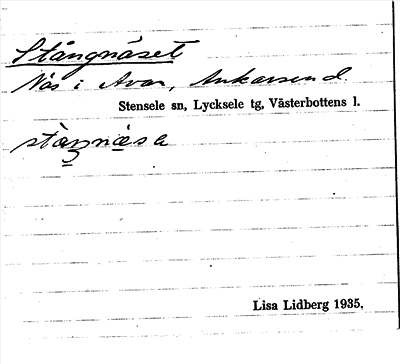 Stångnäset
Näs i Avan, Ankarsund.
Stensele sn, Lycksele tg, Västerbottens l.
Lisa Lidberg 1935.